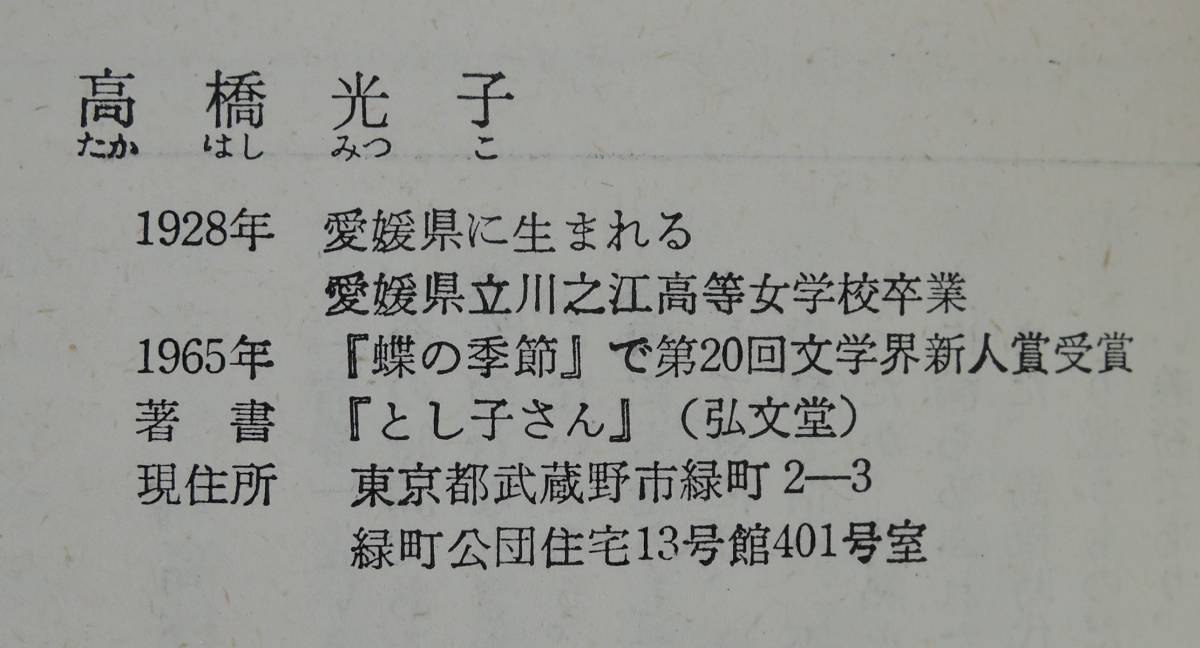 高橋光子
たかはしみつこ
1928年 愛媛県に生まれる
愛媛県立川之江高等女学校卒業
1965年 『蝶の季節』で第20回文学界新人賞受賞
著書 『とし子さん』（弘文堂）
現住所 東京都武蔵野市緑町2—3
緑町公団住宅13号館401号室